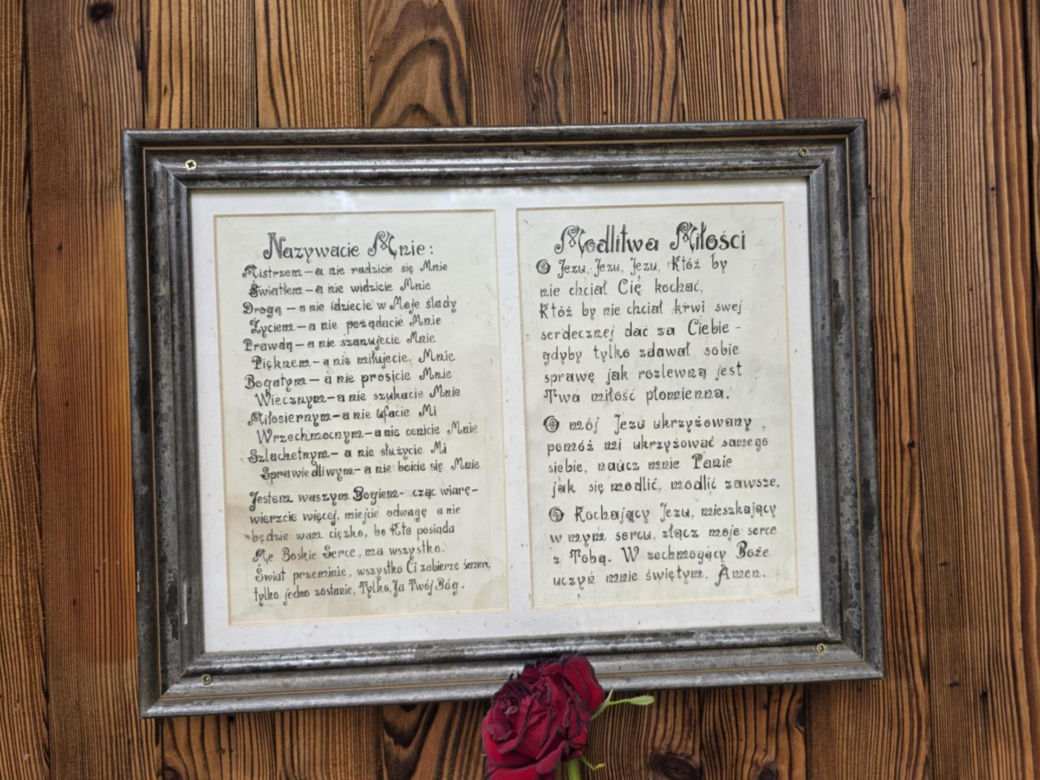 Nazywacie Mnie:
Mistrzem – a nie radzicie się Mnie
Światłem – a nie widzicie Mnie
Drogą – a nie idziecie w Moje ślady
Życiem – a nie pożądacie Mnie
Prawdą – a nie szanujecie Mnie
Pięknem – a nie miłujecie, Mnie
Bogatym – a nie prosicie Mnie
Wiecznym – a nie szukacie Mnie
Miłosiernym – a nie ufacie Mi
Wrzechmocnym – a nie cenicie Mnie
Szlachetnym – a nie służycie Mi
Sprawiedliwym – a nie boicie się Mnie
Jestem waszym Bogiem – cząc wiarę –
wierzcie więcej, miejcie odwagę a nie
będzie wam ciężko, bo Kto posiada
Me Boskie Serce, ma wszystko.
Świat przeminie, wszystko Ci zabierze śmierć,
tylko jedno zostanie, Tylko, Ja Twój Bóg.
Modlitwa Miłości
O Jezu, Jezu, Jezu, Któż by
nie chciał Cię kochać,
Któż by nie chciał krwi swej
serdecznej dać za Ciebie –
gdyby tylko zdawał sobie
sprawę jak rozlewną jest
Twa miłość płomienna.
O mój Jezu ukrzyżowany,
pomóż mi ukrzyżować samego
siebie, naucz mnie Panie
jak się modlić, modlić zawsze.
O Kochający Jezu, mieszkający
w mym sercu, złącz moje serce
z Tobą. W zechmogący Boże
uczyń mnie świętym. Amen.